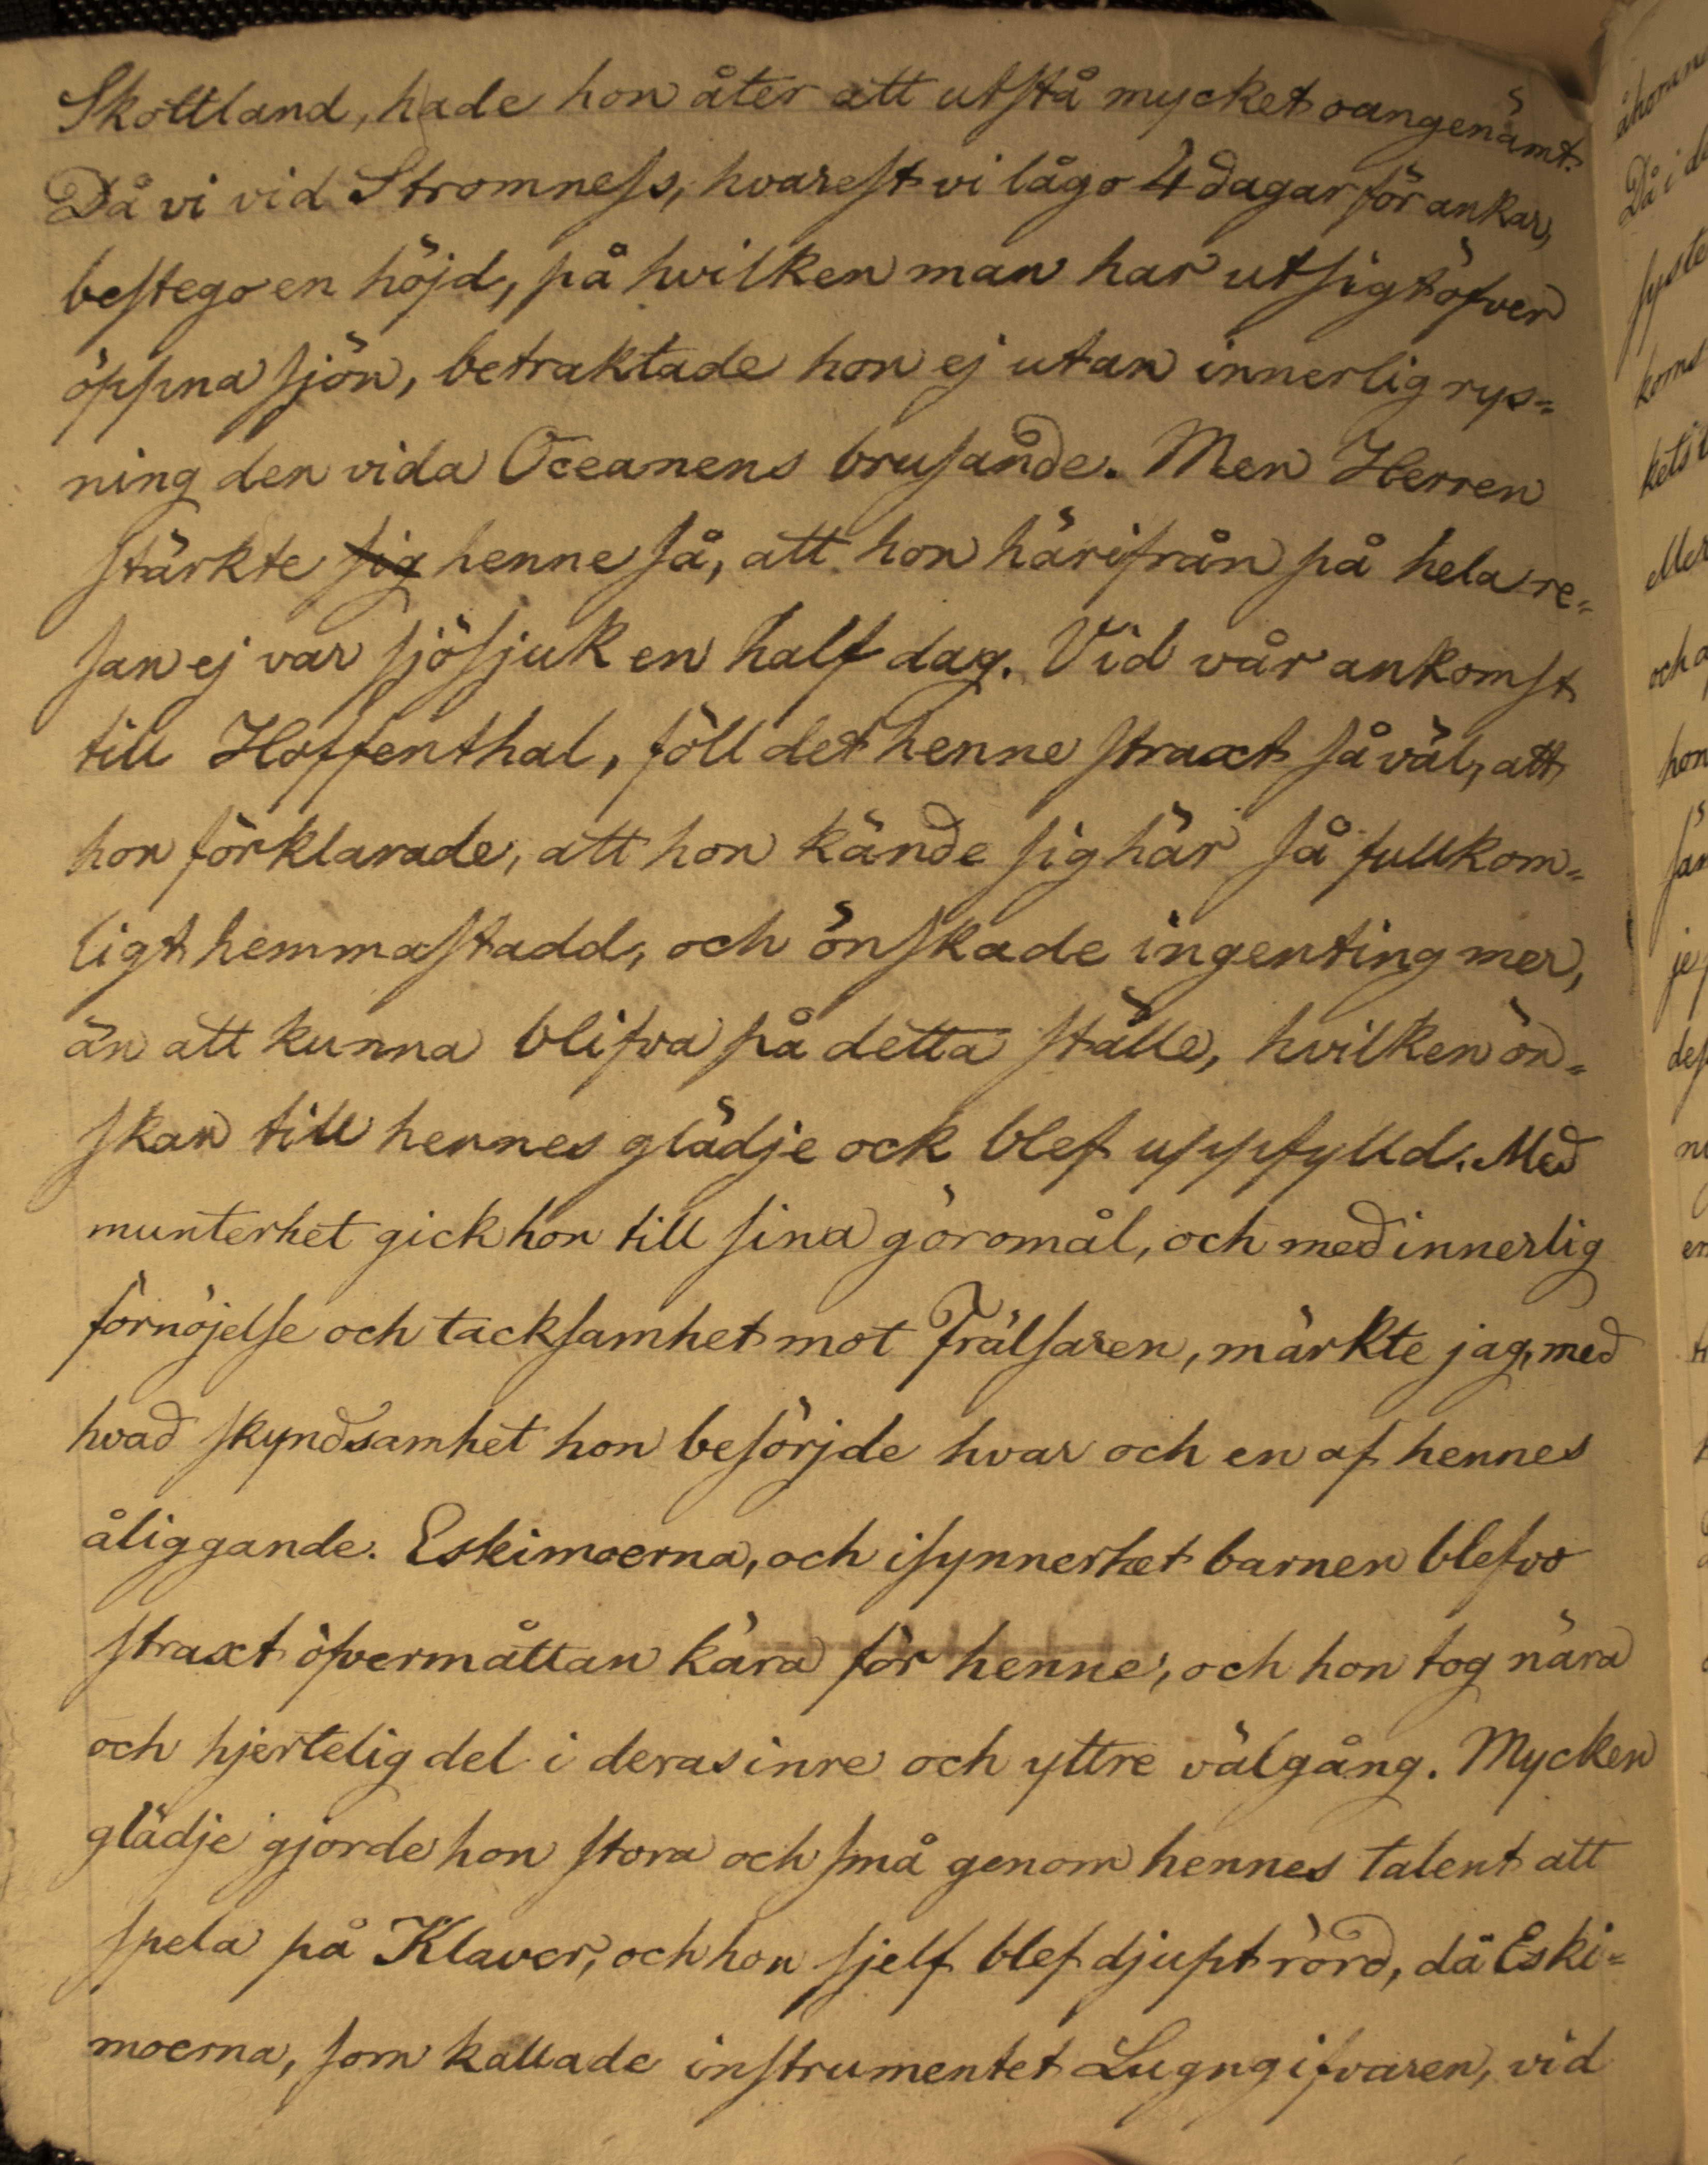 Skottland, hade hon åter att utstå mycket oangenämt.
Då vi vid Stromness, hvarest vi lågo 4 dagar för ankar,
bestego en höjd, på hvilken man har utsigt öfver
öppna sjön, betraktade hon ej utan innerlig rys=
ning den vida Oceanens brusande. Men Herren
stärkte sig henne så, att hon härifrån på hela re=
san ej var sjösjuk en half dag. Vid vår ankomst
till Hoffenthal, föll det henne straxt så väl, att
hon förklarade, att hon kände sig här så fullkom=
ligt hemmastadd, och önskade ingenting mer,
än att kunna blifva på detta ställe, hvilken ön=
skan till hennes glädje ock blef uppfylld. Med
munterhet gick hon till sina göromål, och med innerlig
förnöjelse och tacksamhet mot Frälsaren, märkte jag, med
hvad skyndsamhet hon besörjde hvar och en af hennes
åliggande. Eskimoerna, och isynnerhet barnen blefvo
straxt öfvermåttan kära för henne, och hon tog nära
och hjertelig del i deras inre och yttre välgång. Mycken
glädje gjorde hon stora och små genom hennes talent att
spela på Klaver, och hon sjelf blef djupt rörd, då Eski=
moerna, som kallade instrumentet Lugngifvaren, vid